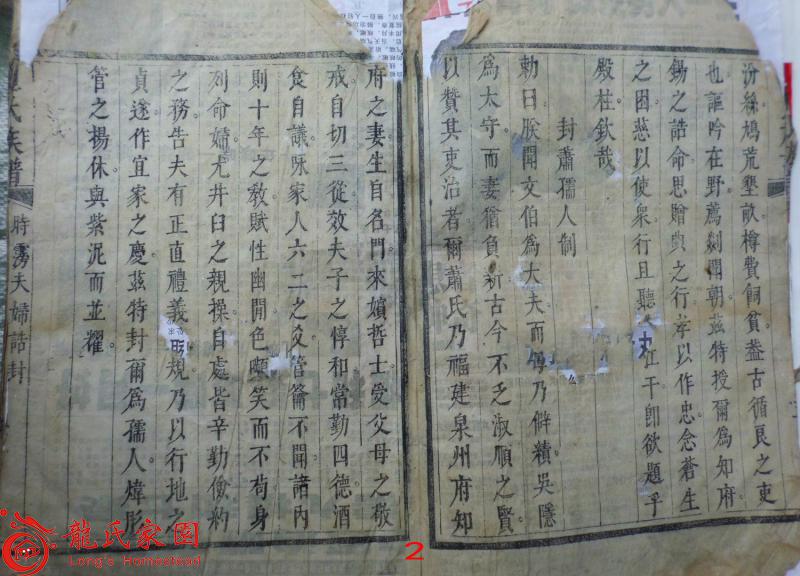 汾絲鳩荒墾畝樽費飼貧盖古循良之吏
也謳吟在野薦剡聞朝茲特授爾為知府
錫之誥命思贈典之行孝以作忠念蒼生
之困慈以使衆行且聽 江干即欲題乎
殿柱欽哉
封蕭孺人制
勅曰朕聞文伯為大夫而母乃僻績吳隱
為太守而妻猶負薪古今不乏淑順之賢
以贊其吏治者爾蕭氏乃福建泉州府知
府之妻生自名門來嬪哲士受父母之敬
戒自切三從效夫子之惇和常勤四德酒
食自議 家人六二之爻管籥不聞諸內
則十年之教賦性幽閒色嚬笑而不苟身
列命婦尤井臼之親操自處皆辛勤儉約
之務告夫有正直禮義 規乃以行地之
貞遂作宜家之慶茲特封爾為孺人煒彤
管之揚休與紫泥而並耀
氏族譜
時霱夫婦誥封
龍氏家園
Long's Homestead
2